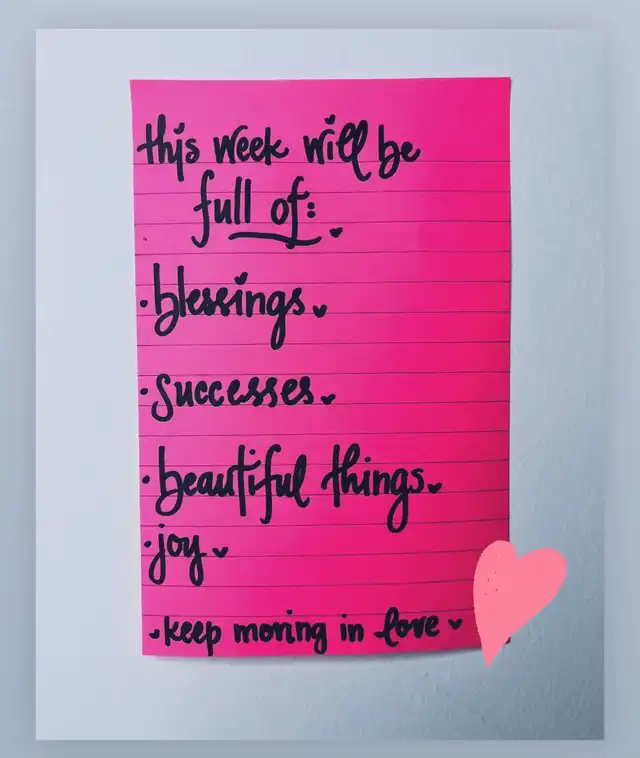 this week will be
full of:
• blessings
• successes
• beautiful things
• joy
keep moving in love